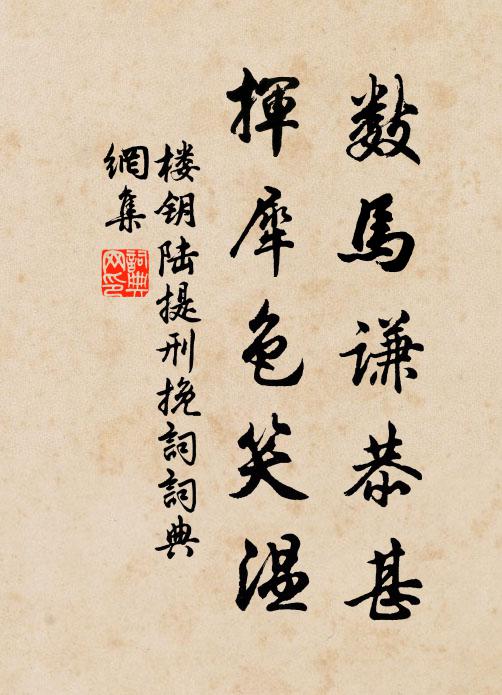 數馬謙恭甚
揮犀色笑温
楼钥陆提刑挽詞詞典
網集
詞典
网印